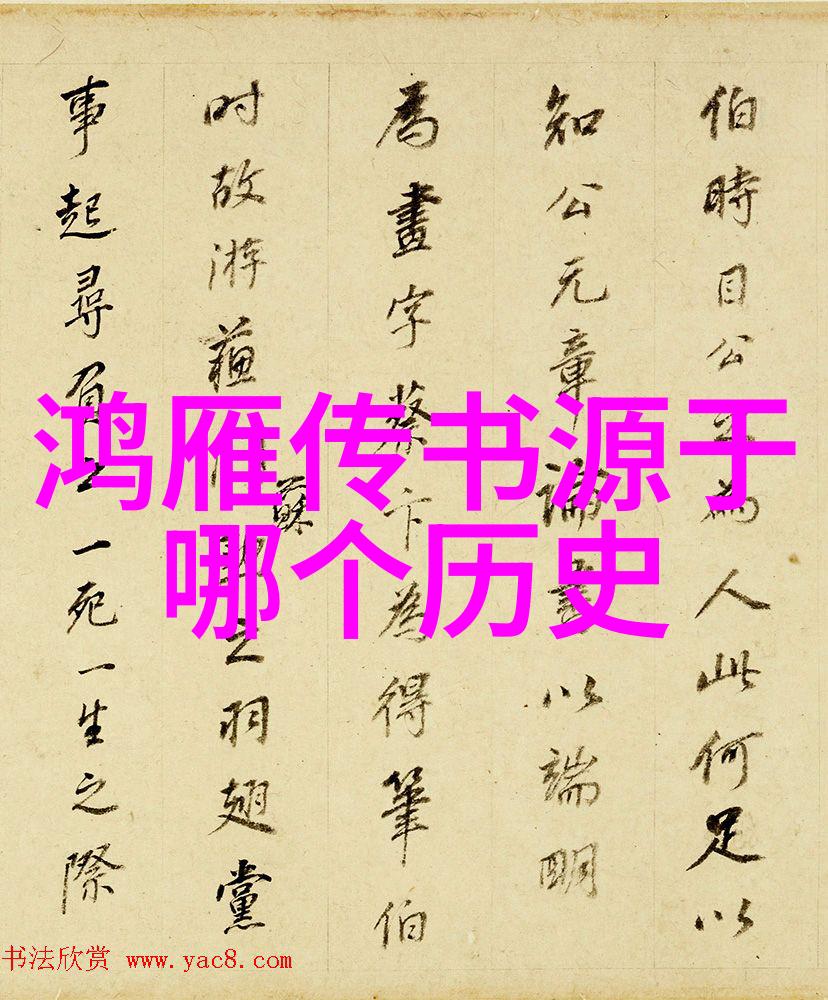 伯時目公為人此何足以
知公元章論書以端明
為畫字蔡卞為得筆伯
时故游蘓之羽翅黨
蘇
事起尋負之一死一生之際
鸿雁传书源于
哪个历史
书法欣赏 www.yac8.com